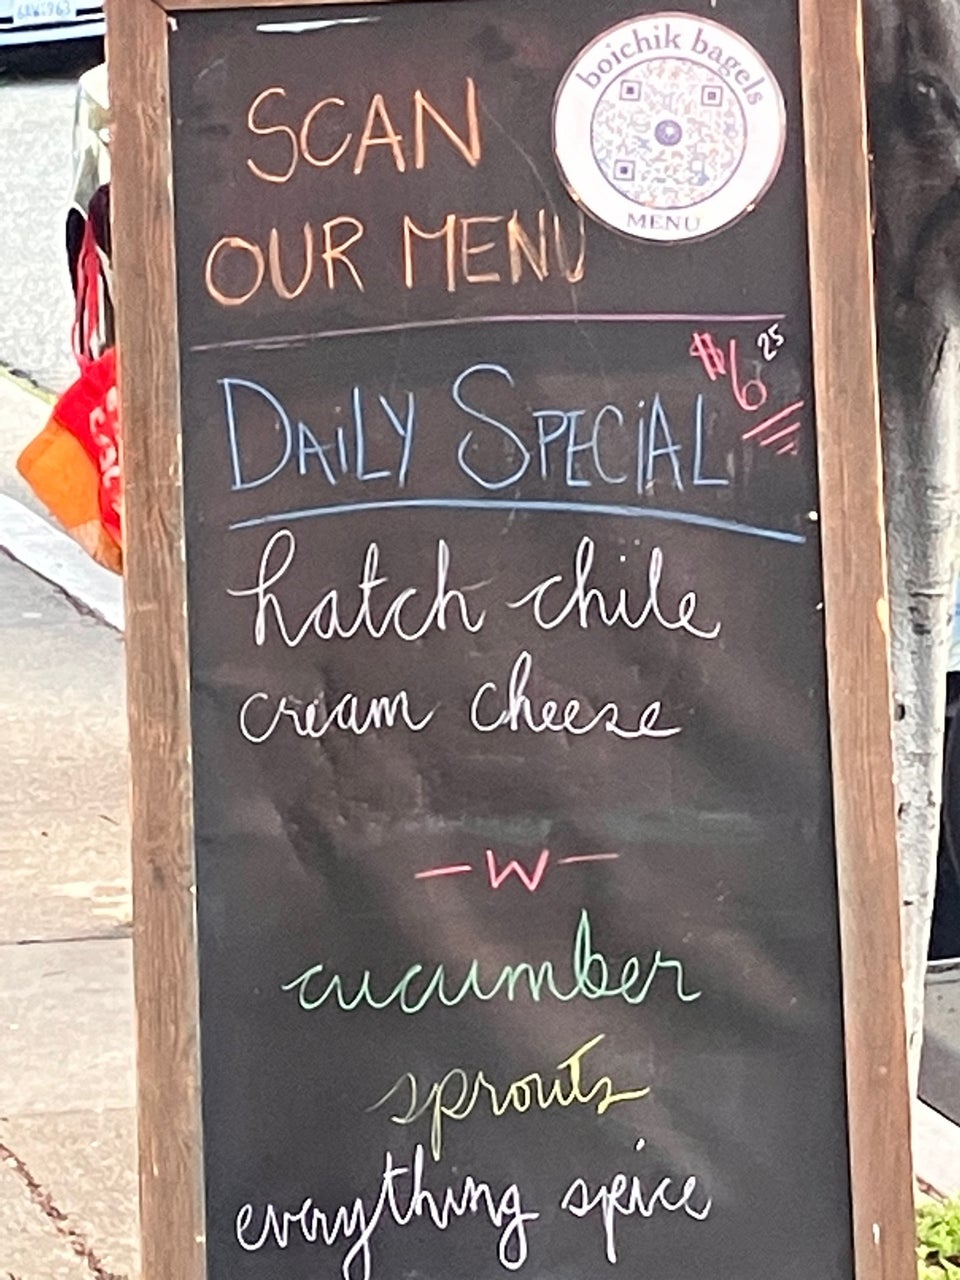 boichik bagels
MENU
SCAN
OUR MENU
$6 25
DAiLY SPECiAL
hatch chile
cream cheese
-W-
cucumber
sprouts
everything spice